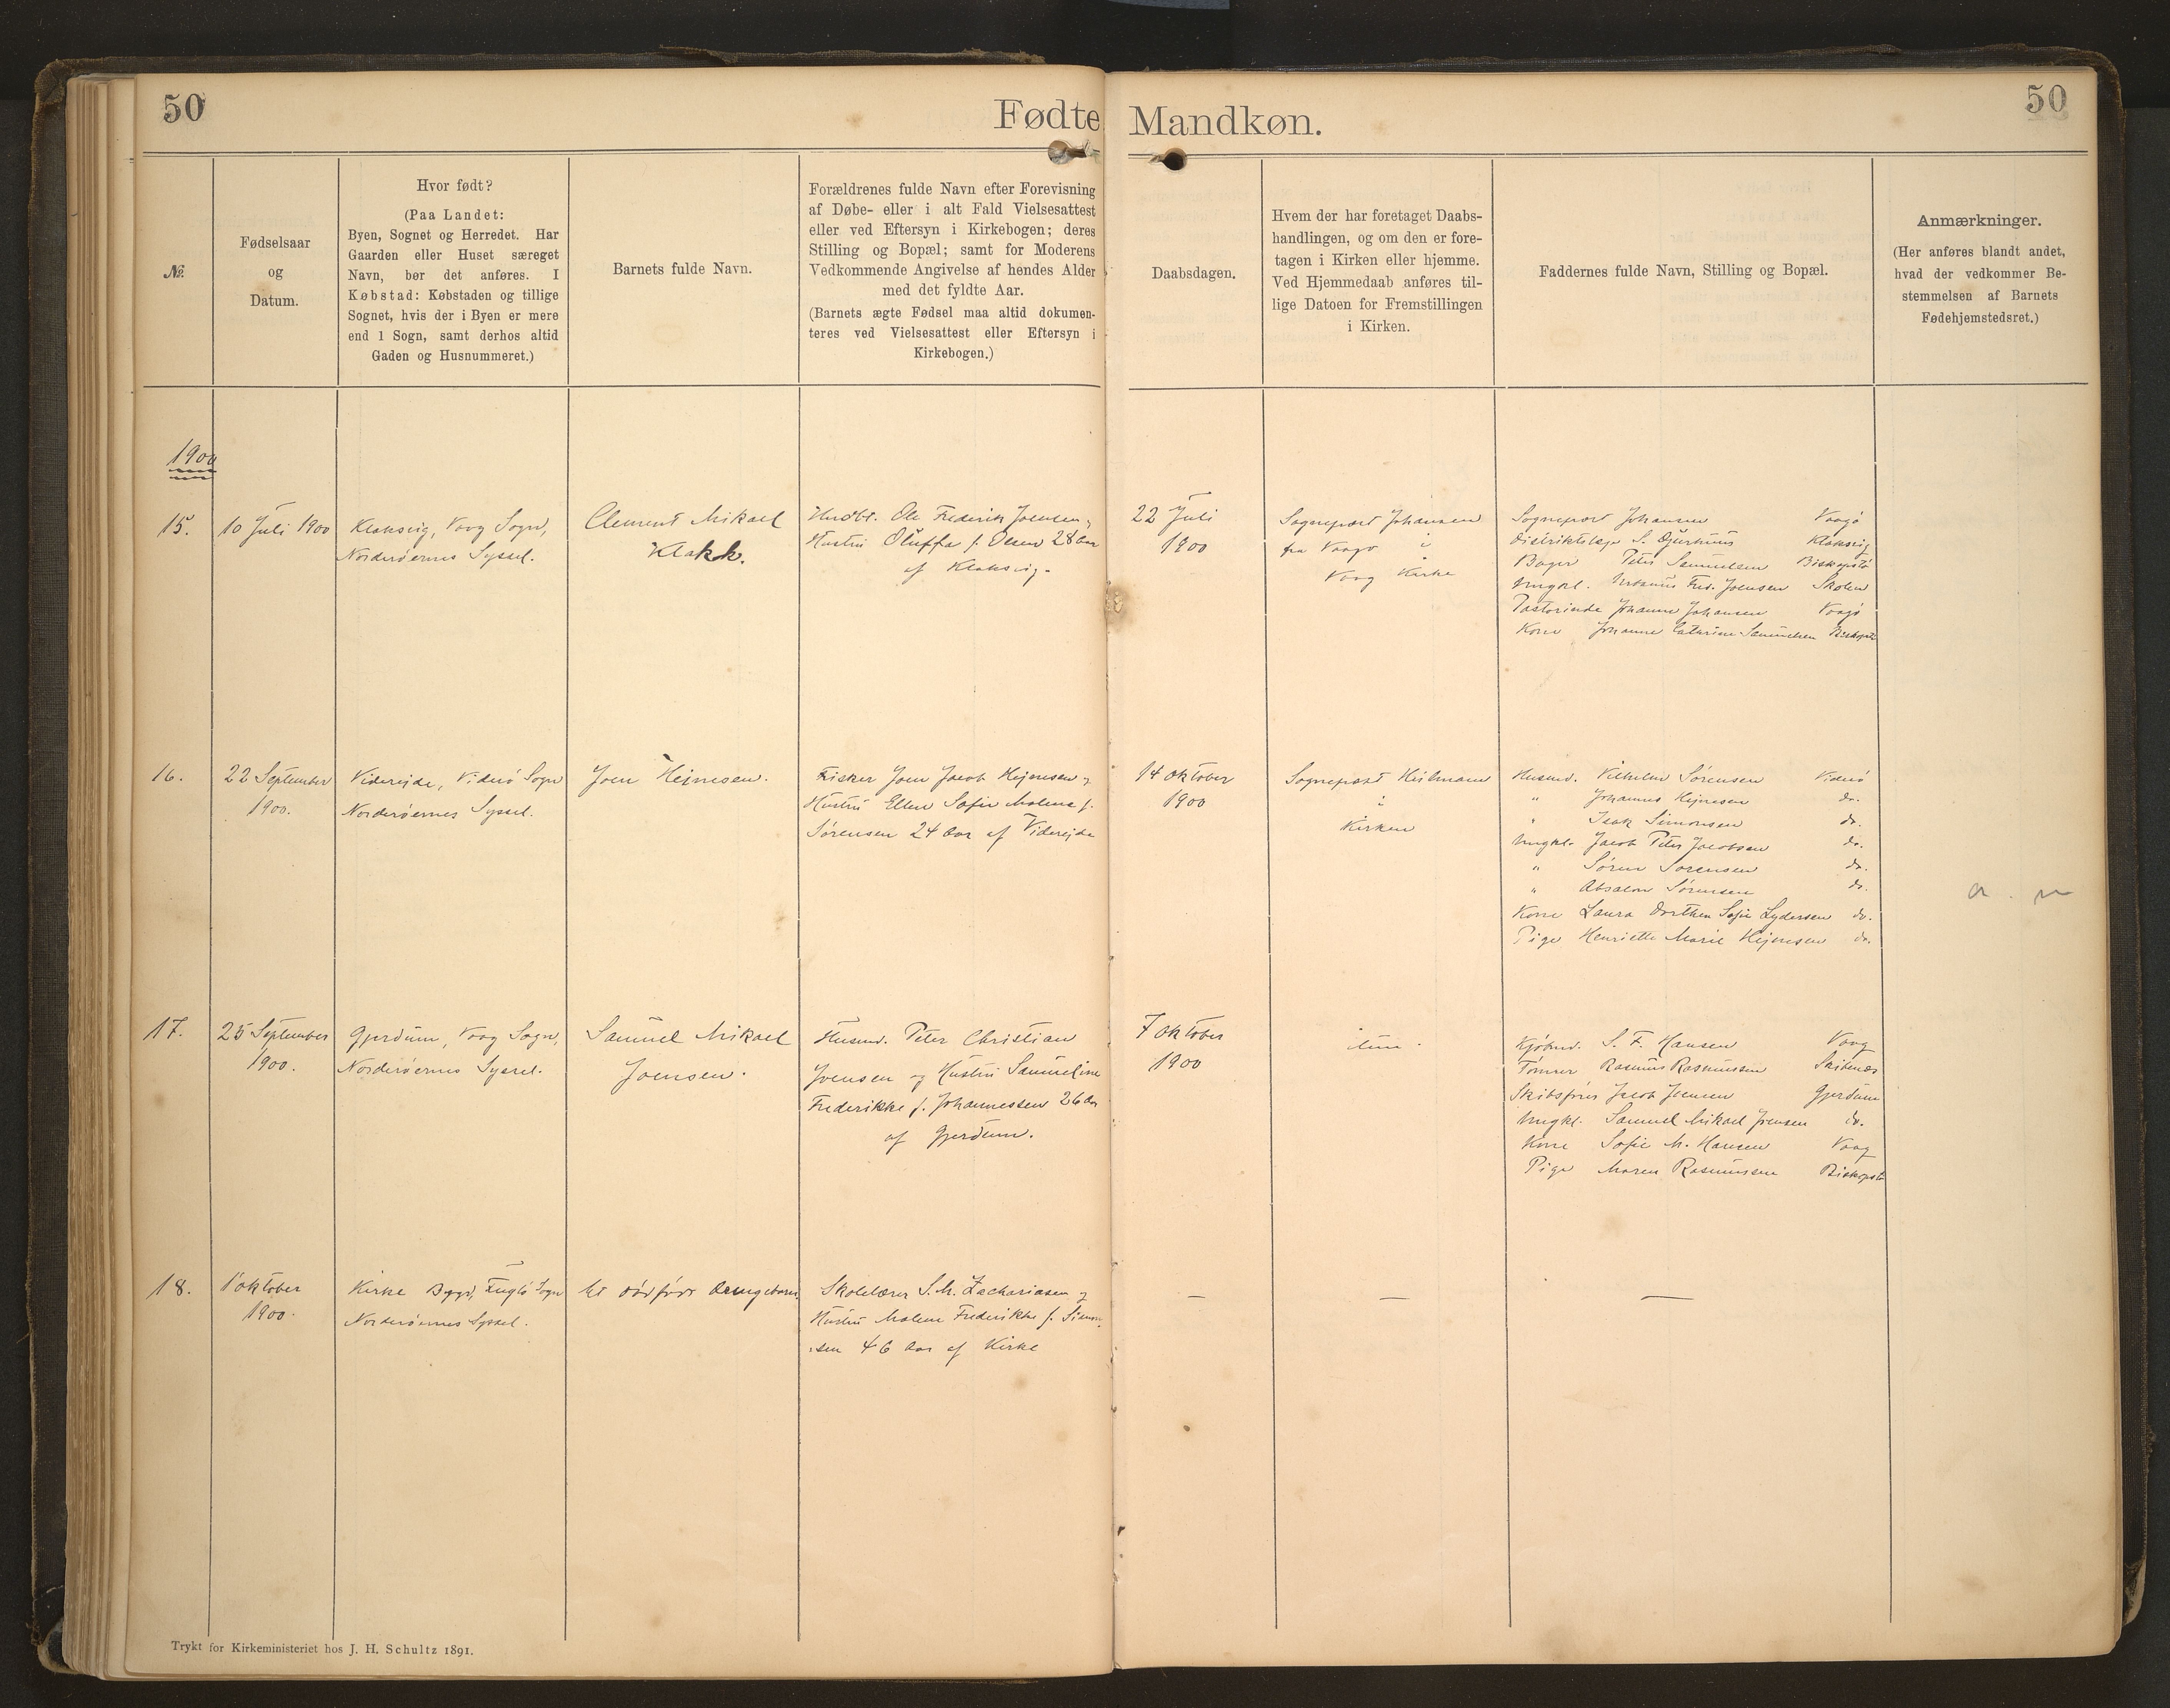 50
Fødte Mandkøn.
50
№.
Fødselsaar
og
Datum.
Hvor født?
(Paa Landet:
Byen, Sognet og Herredet. Har
Gaarden eller Huset særeget
Navn, bør det anføres. I
Købstad: Købstaden og tillige
Sognet, hvis der i Byen er mere
end 1 Sogn, samt derhos altid
Gaden og Husnummeret.)
Barnets fulde Navn.
Forældrenes fulde Navn efter Forevisning
af Døbe- eller i alt Fald Vielsesattest
eller ved Eftersyn i Kirkebogen; deres
Stilling og Bopæl; samt for Moderens
Vedkommende Angivelse af hendes Alder
med det fyldte Aar.
(Barnets ægte Fødsel maa altid dokumen-
teres ved Vielsesattest eller Eftersyn i
Kirkebogen.)
Daabsdagen.
Hvem der har foretaget Daabs-
handlingen, og om den er fore-
tagen i Kirken eller hjemme.
Ved Hjemmedaab anføres til-
lige Datoen for Fremstillingen
i Kirken.
Faddernes fulde Navn, Stilling og Bopæl.
Anmærkninger.
(Her anføres blandt andet,
hvad der vedkommer Be-
stemmelsen af Barnets
Fødehjemstedsret.)
1900
15.
10 Juli 1900
Klaksvig, Vaag Sogn,
Norderøernes Syssel.
Clement Mikael
Klakk.
Ole Frederik Joensen,
Hustru Oluffa f. Olsen 28 Aar
af Klaksvig.
22 Juli
1900
Sognepræst Johansen
fra Vaagø i
Vaag Kirke
Sognepræst Johansen Vaagø
Distriktslæge S. Klaksvig
Bager Peter Samuelsen Biskopstø
Ungkl. Fred. Joensen Skolen
Pastorinde Johanne Johansen Vaagø
Kone Johanne Cathrine Samuelsen
16.
22 September
1900.
Videreide, Viderø Sogn
Norderøernes Syssel.
Joen Hejnesen.
Fisker Joen Jacob Hejnesen og
Hustru Ellen Sofie Malene f.
Sørensen 24 Aar af Viderejde
14 Oktober
1900
Sognepræst Heilmann
i
Kirken
Husmd. Vilhelm Sørensen Viderø
" Johannes Hejnesen do.
" Isak Simonsen do.
Ungkl. Jacob Peter Jacobsen do.
" Søren Sørensen do.
" Absalon Sørensen do.
Kone Laura Dorthea Sofie Lydersen do.
Pige Henriette Marie Hejnesen do.
17.
25 September
1900.
Gjerdum, Vaag Sogn,
Norderøernes Syssel.
Samuel Mikael
Joensen.
Husmd. Peter Christian
Joensen og Hustru Samueline
Frederikke f. Johannessen 26 Aar
af Gjerdum.
7 Oktober
1900
Kjøbmd. S. F. Hansen Vaag
Tømrer Rasmus Rasmussen
Skibsfører Jacob Joensen Gjerdum
Ungkl. Samuel Mikael Joensen do.
Kone Sofie M. Hansen Vaag
Pige Maren Rasmussen Biskopstø
18.
1 Oktober
1900.
Kirke Bygd, Fuglø Sogn
Norderøernes Syssel.
Et dødfødt Drengebarn.
Skolelærer S. M. Zachariasen og
Hustru Malene Frederikke f. Simon-
sen 46 Aar af Kirke
—
—
—
Trykt for Kirkeministeriet hos J. H. Schultz 1891.